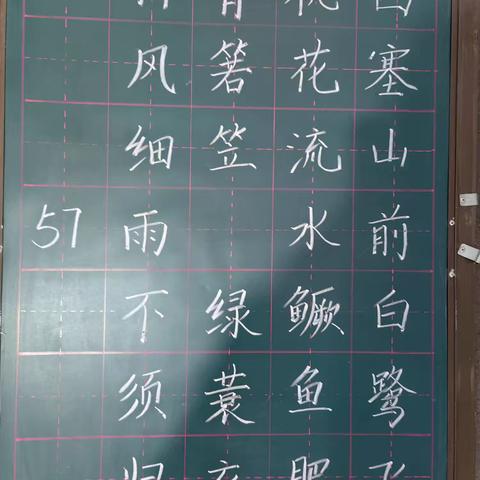 西塞山前白鹭飞
桃花流水鳜鱼肥
青箬笠 绿蓑衣
斜风细雨不须归
57